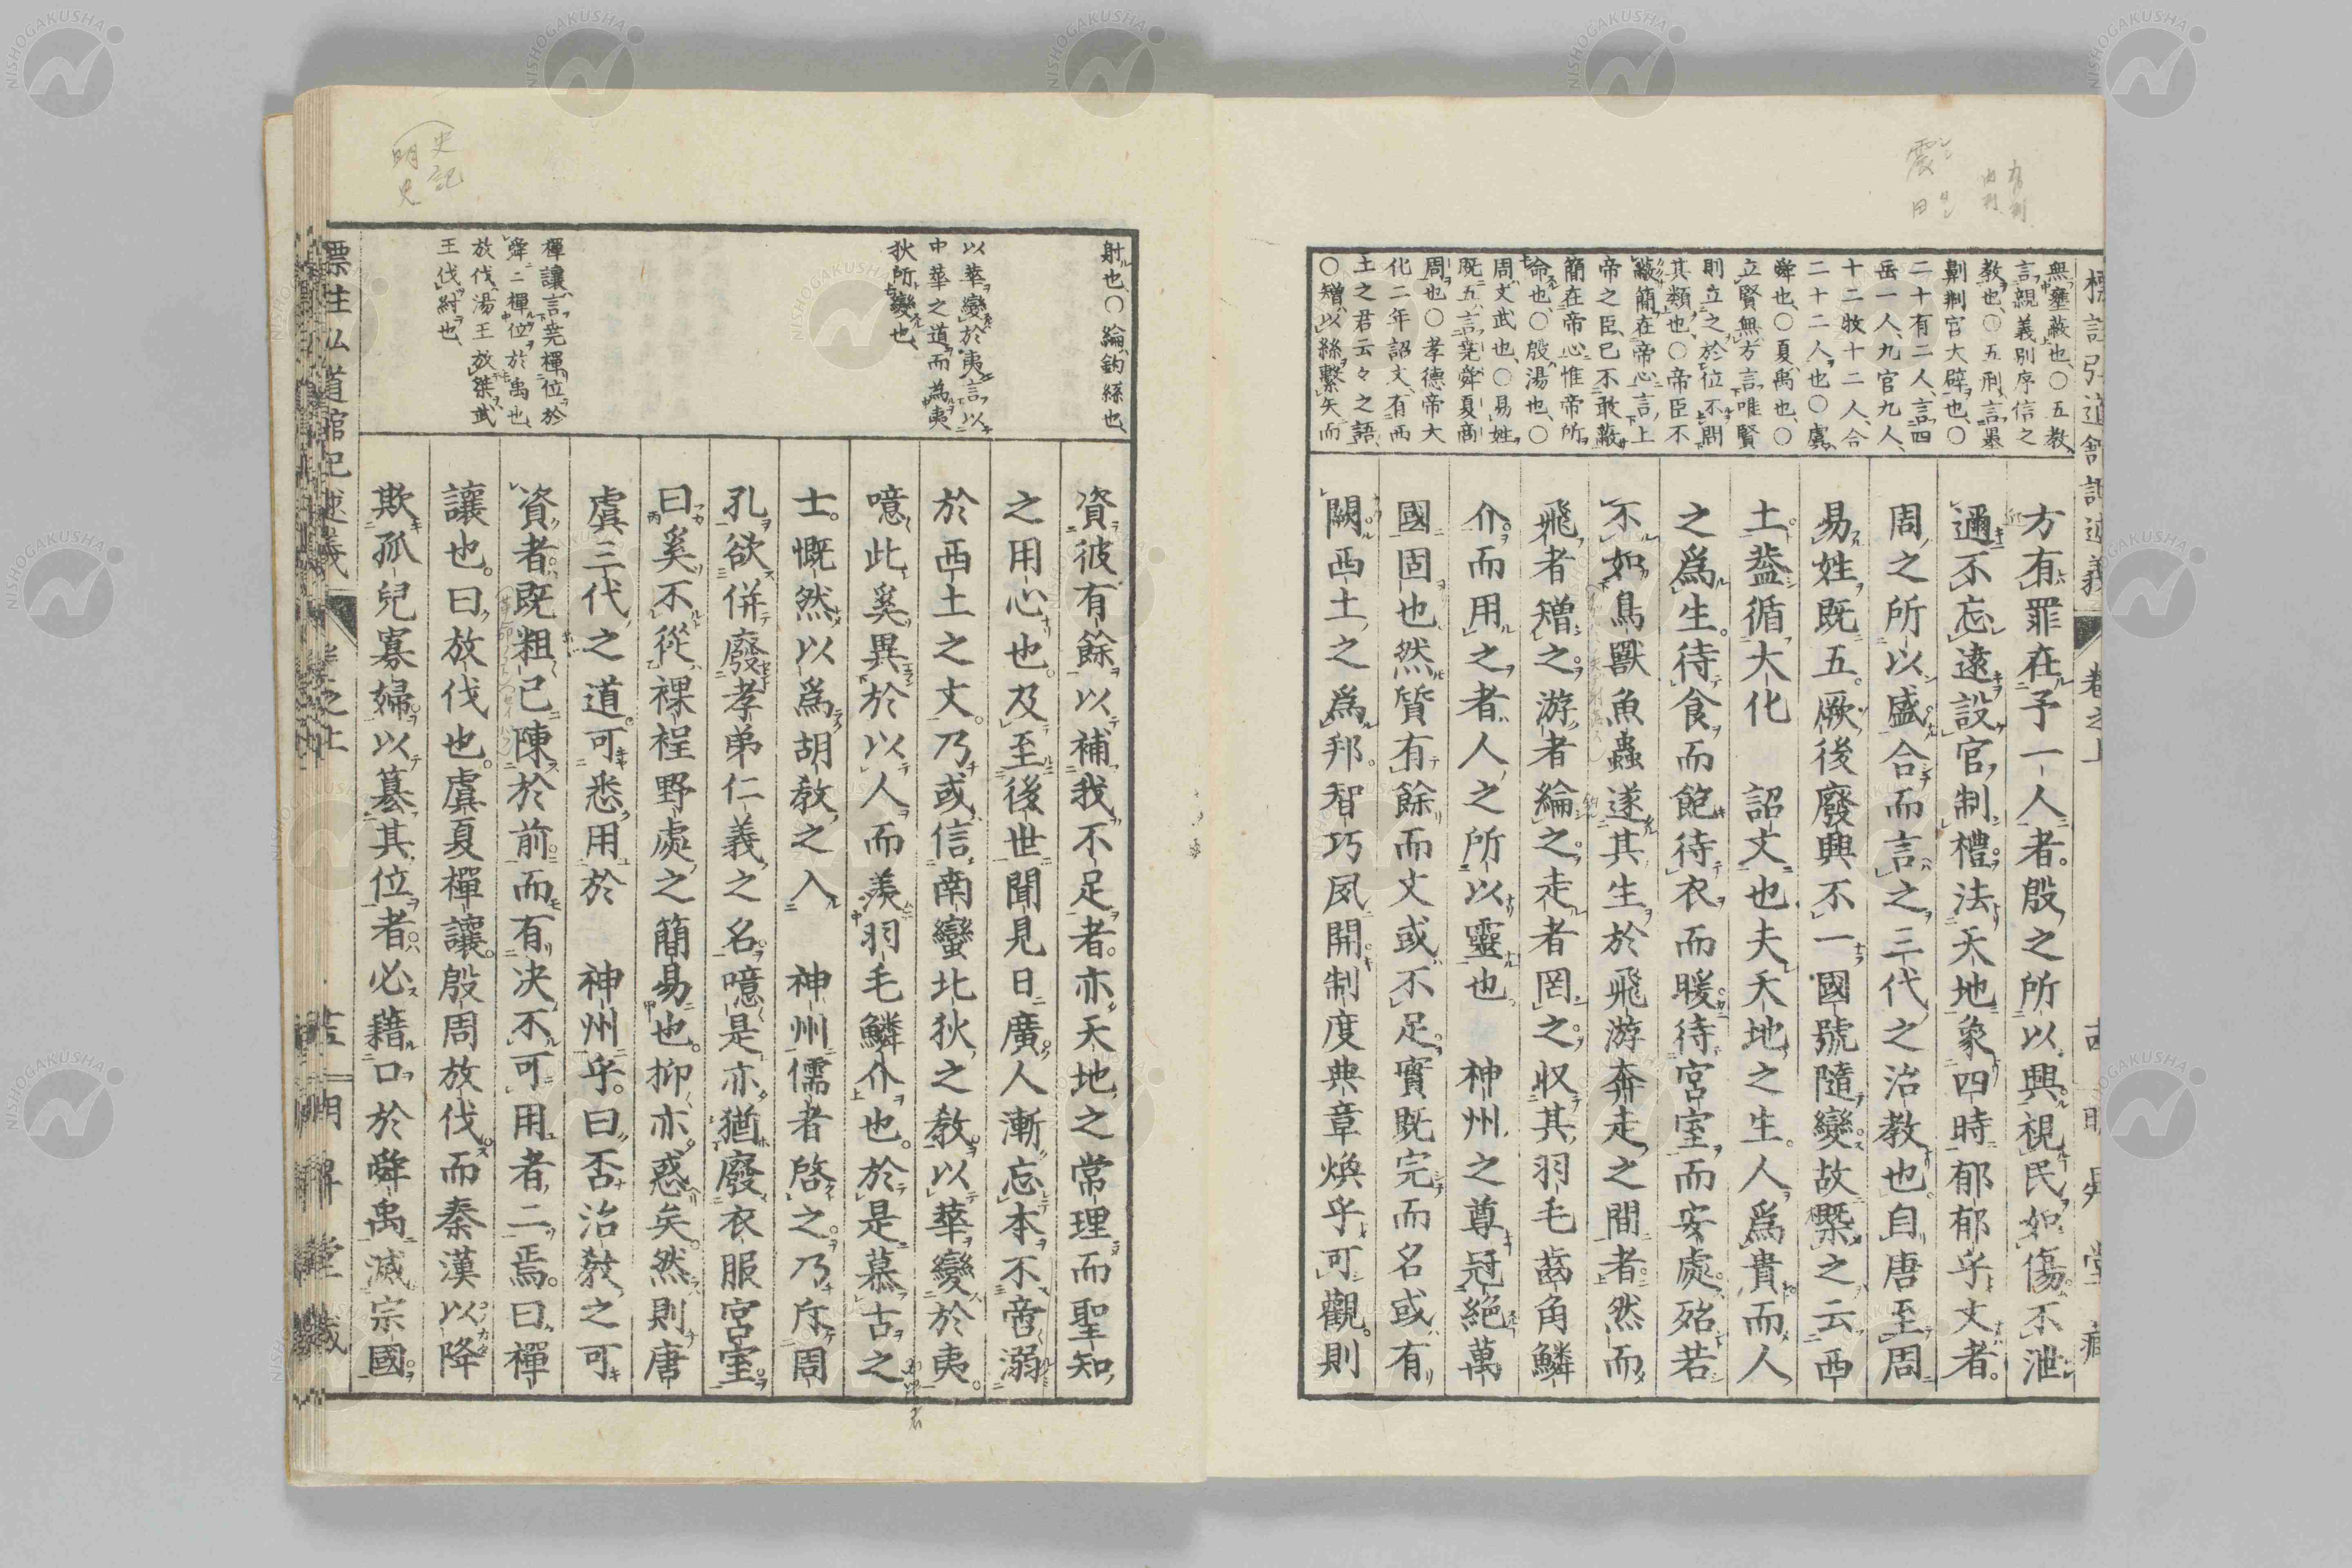 標註弘道館記述義
卷之上
無壅蔽也、○五教、
言親義別序信之
教也、○五刑、言墨
劓剕宮大辟也、○
二十有二人、言四
岳一人、九官九人、
十二牧十二人、合
二十二人也、○虞、
舜也、○夏、禹也、○
立賢無方言、唯賢
則立之於位不問
其類也、○帝臣不
蔽簡在帝心言、上
帝之臣、已不敢蔽
簡在帝心惟帝所
命也、○殷、湯也、○
周、文武也、○易姓
既五、言堯舜夏商
周也、○孝德帝大
化二年詔文、有西
土之君云々之語、
○矰、以絲繫矢而
方有罪在予一人者。殷之所以興視民如傷不泄
邇不忘遠設官制禮法天地象四時郁郁乎文者。
周之所以盛合而言之三代之治教也。自唐至周
易姓既五。厥後廢興不一國號隨變故槩之云西
土。蓋循大化 詔文也夫天地之生。人爲貴而人
之爲生。待食而飽待衣而暖待宮室而安處殆若
不如鳥獸魚蟲遂其生於飛游奔走之間者。然而
飛者矰之。游者綸之。走者罔之。収其羽毛齒角鱗
介而用之者人之所以靈也 神州之尊冠絶萬
國固也然質有餘而文或不足。實既完而名或有
闕。西土之爲邦。智巧夙開制度典章煥乎可觀。則
射也、○綸、釣絲也、
以華變於夷言、以
中華之道而為夷
狄所變也、
禪讓、言堯禪位於
舜ニ禪位於禹也、
放伐、湯王放桀武
王伐紂也、
資彼有餘以補我不足者。亦天地之常理而聖知
之用心也。及至後世聞見日廣人漸忘本不啻溺
於西土之文。乃或信南蠻北狄之教。以華變於夷。
噫此奚異於以人而羨羽毛鱗介也。於是慕古之
士。慨然以爲胡教之入 神州儒者啓之。乃斥周
孔欲併廢孝弟仁義之名。噫是亦猶廢衣服宮室。
曰奚不從裸裎野處之簡易也。抑亦惑矣。然則唐
虞三代之道。可悉用於 神州乎。曰否治教之可
資者既粗已陳於前而有決不可用者二焉。曰禪
讓也。曰放伐也。虞夏禪讓。殷周放伐而秦漢以降
欺孤兒寡婦以簒其位者。必藉口於舜禹滅宗國
卷之上
史記
明史
震旦